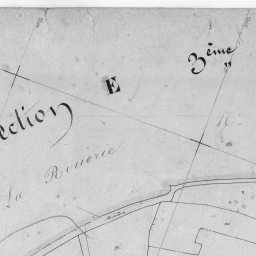 ection E 3ème
La Rouerie